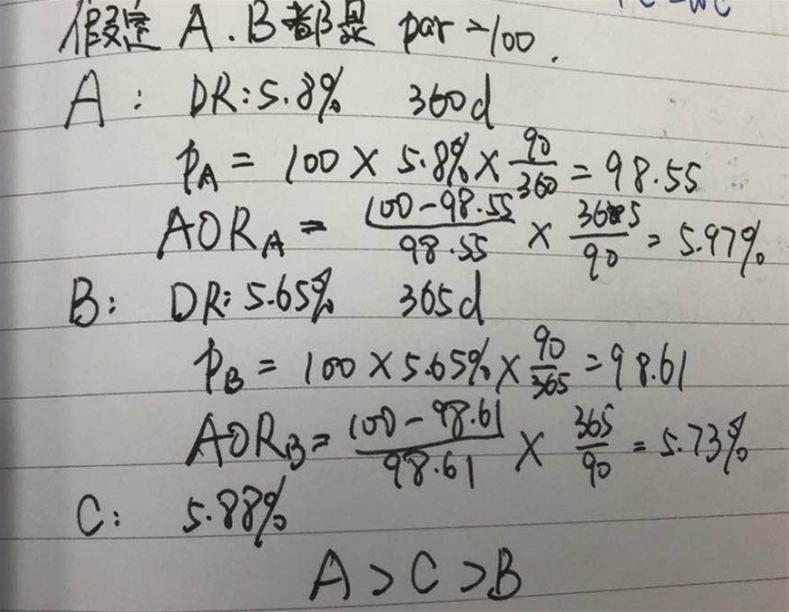 假定 A.B都是 par=100.
A: DR:5.8% 360d
PA = 100 × 5.8% × 90/360 = 98.55
AORA = (100-98.55)/98.55 × 365/90 = 5.97%
B: DR:5.65% 365d
PB = 100 × 5.65% × 90/365 = 98.61
AORB = (100-98.61)/98.61 × 365/90 = 5.73%
C: 5.88%
A > C > B